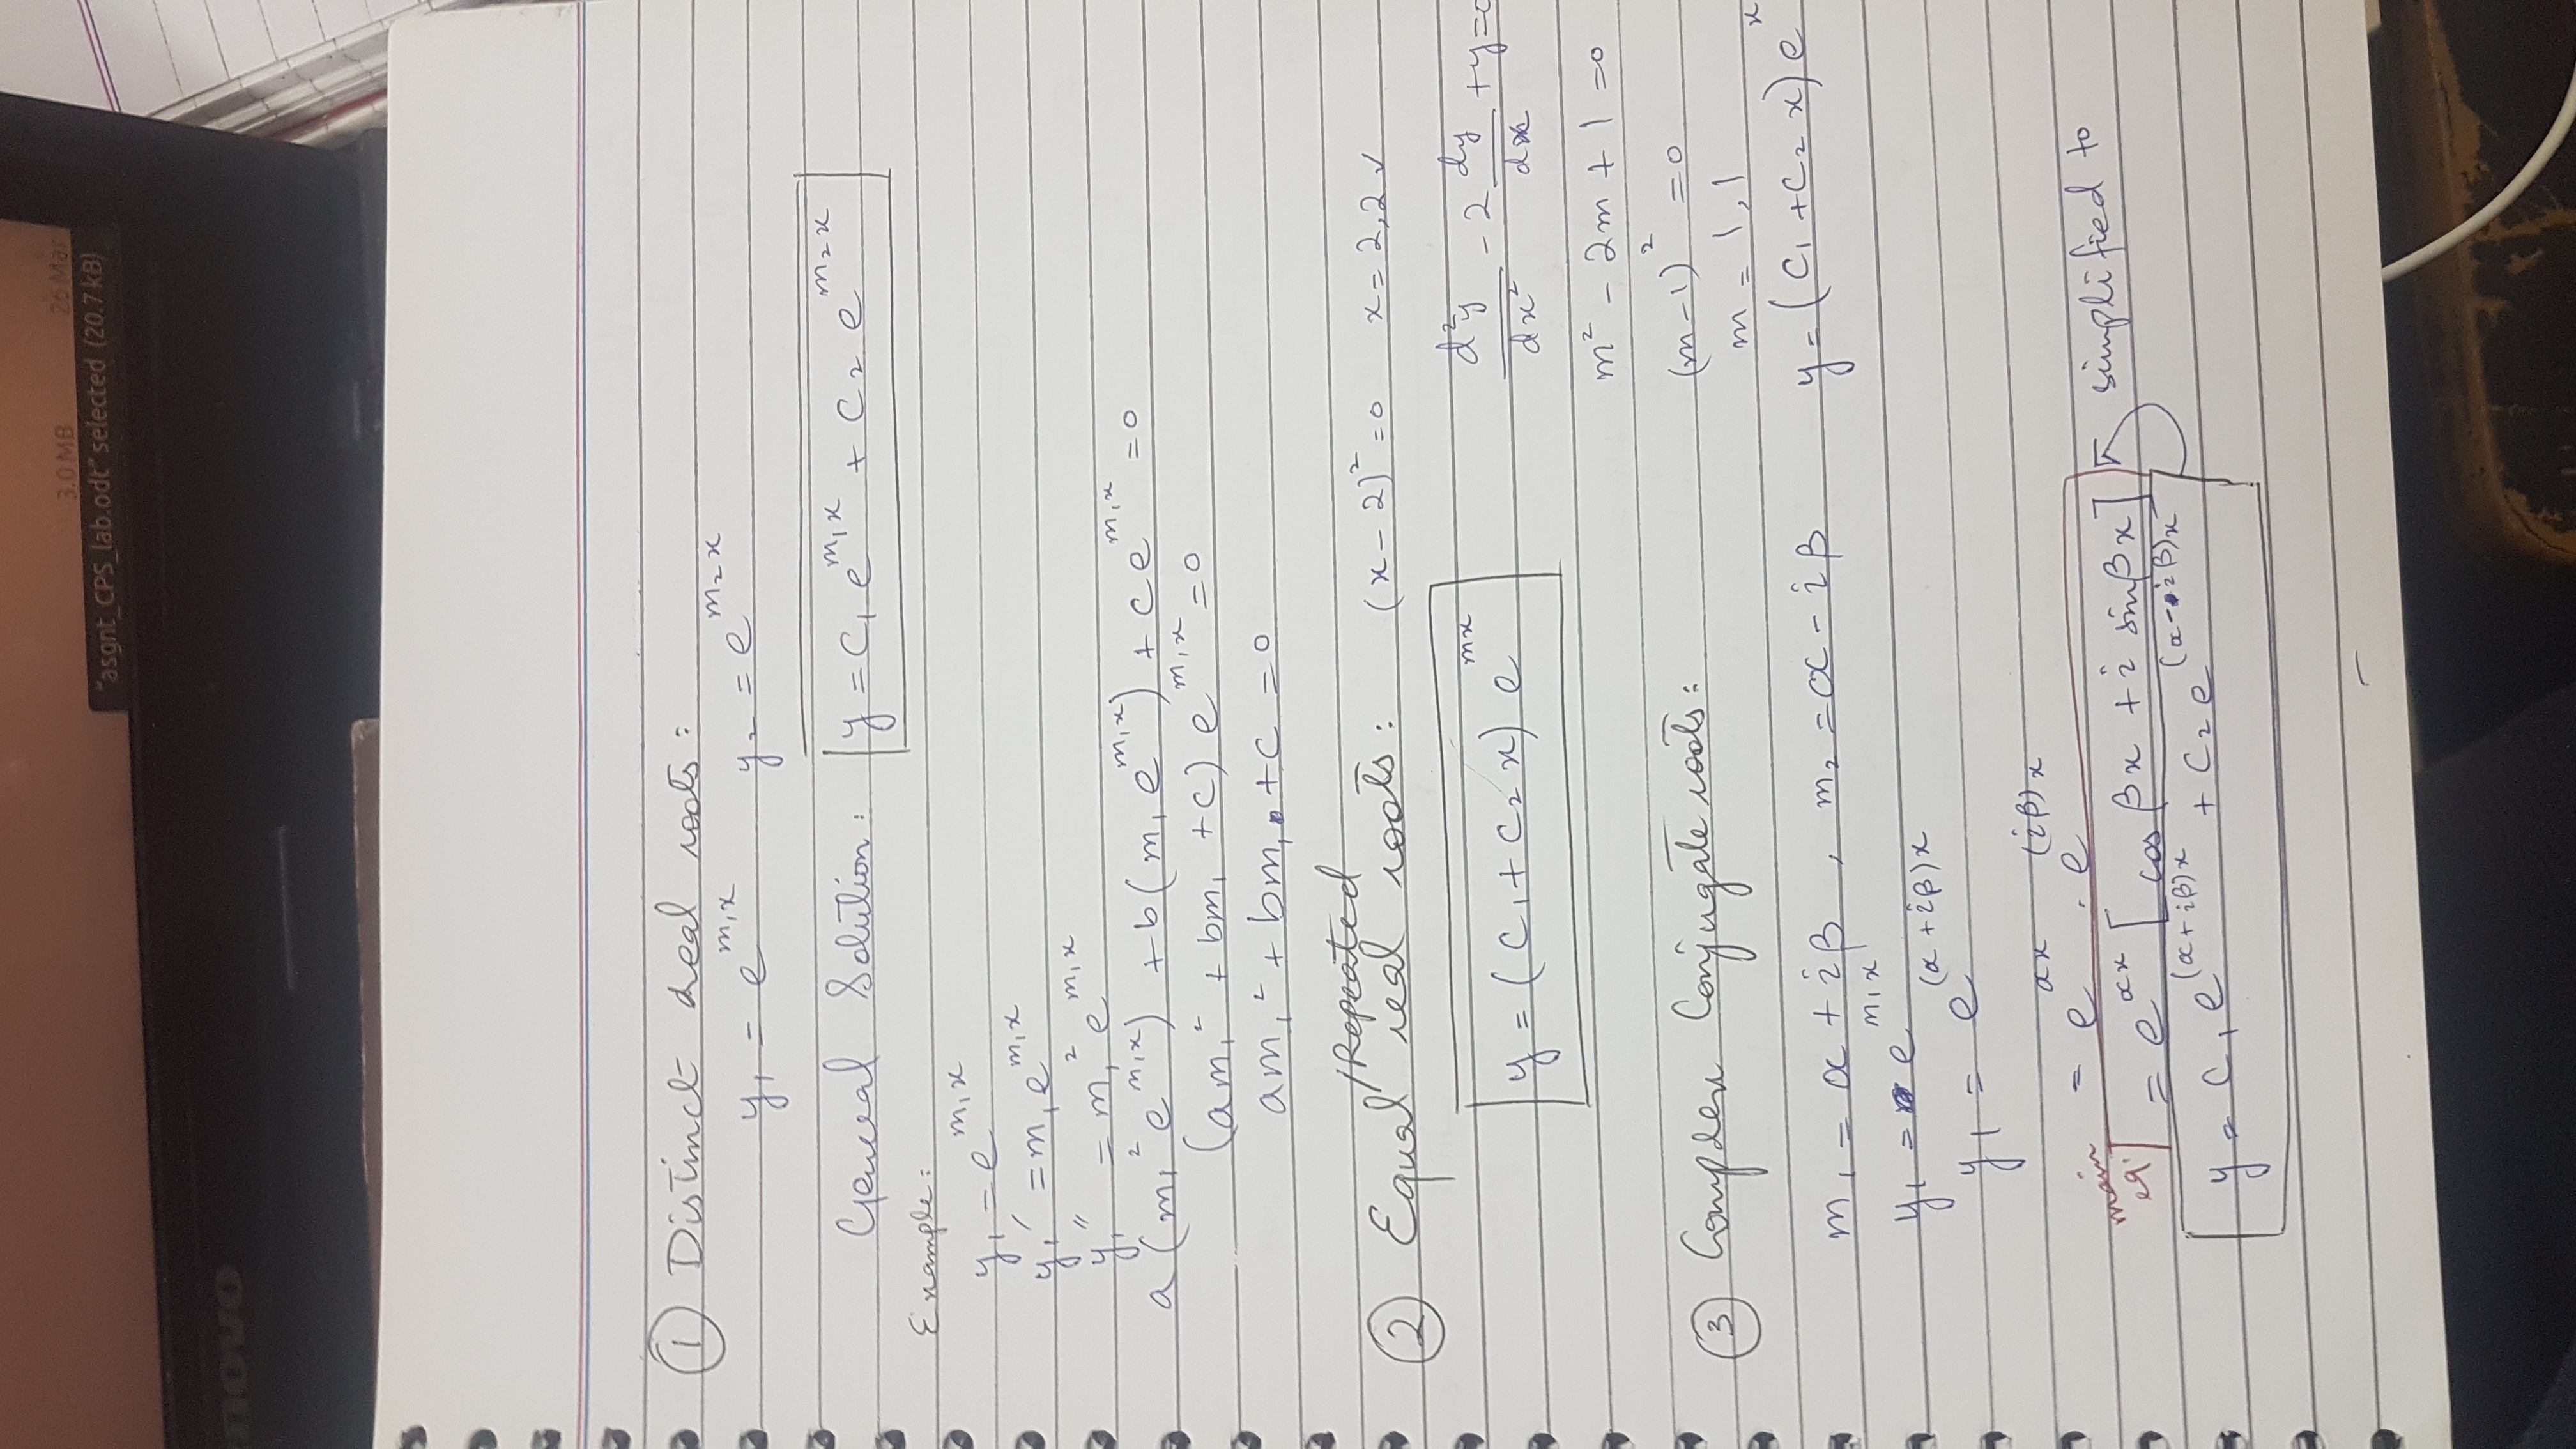 3.0 MB 26 Mar
"asgnt_CPS_lab.odt" selected (20.7 kB)
novo
① Distinct real roots:
y₁ = e^{m₁x} y₂ = e^{m₂x}
General Solution: y = C₁ e^{m₁x} + C₂ e^{m₂x}
Example:
y₁ = e^{m₁x}
y₁′ = m₁ e^{m₁x}
y₁″ = m₁² e^{m₁x}
a (m₁² e^{m₁x}) + b (m₁ e^{m₁x}) + c e^{m₁x} = 0
(am₁² + bm₁ + c) e^{m₁x} = 0
am₁² + bm₁ + c = 0
② Equal /Repeated real roots: (x − 2)² = 0 x = 2,2 ✓
y = (C₁ + C₂ x) e^{mx}
d²y/dx² − 2 dy/dx + y = 0
m² − 2m + 1 = 0
(m − 1)² = 0
m = 1, 1
y = (C₁ + C₂ x) e^{x}
③ Complex Conjugate roots:
m₁ = α + iβ , m₂ = α − iβ
y₁ = e^{m₁x}
y₁ = e^{(α + iβ)x}
= e^{αx} . e^{(iβ)x}
main eq' = e^{αx} [cos βx + i sin βx] simplified to
y = C₁ e^{(α + iβ)x} + C₂ e^{(α − iβ)x}